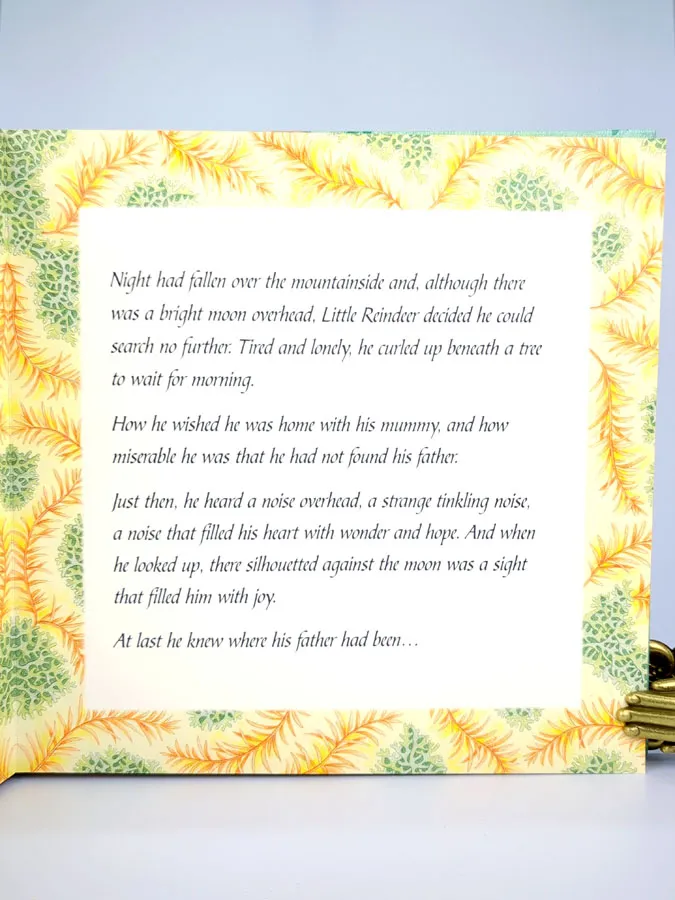 Night had fallen over the mountainside and, although there
was a bright moon overhead, Little Reindeer decided he could
search no further. Tired and lonely, he curled up beneath a tree
to wait for morning.
How he wished he was home with his mummy, and how
miserable he was that he had not found his father.
Just then, he heard a noise overhead, a strange tinkling noise,
a noise that filled his heart with wonder and hope. And when
he looked up, there silhouetted against the moon was a sight
that filled him with joy.
At last he knew where his father had been...